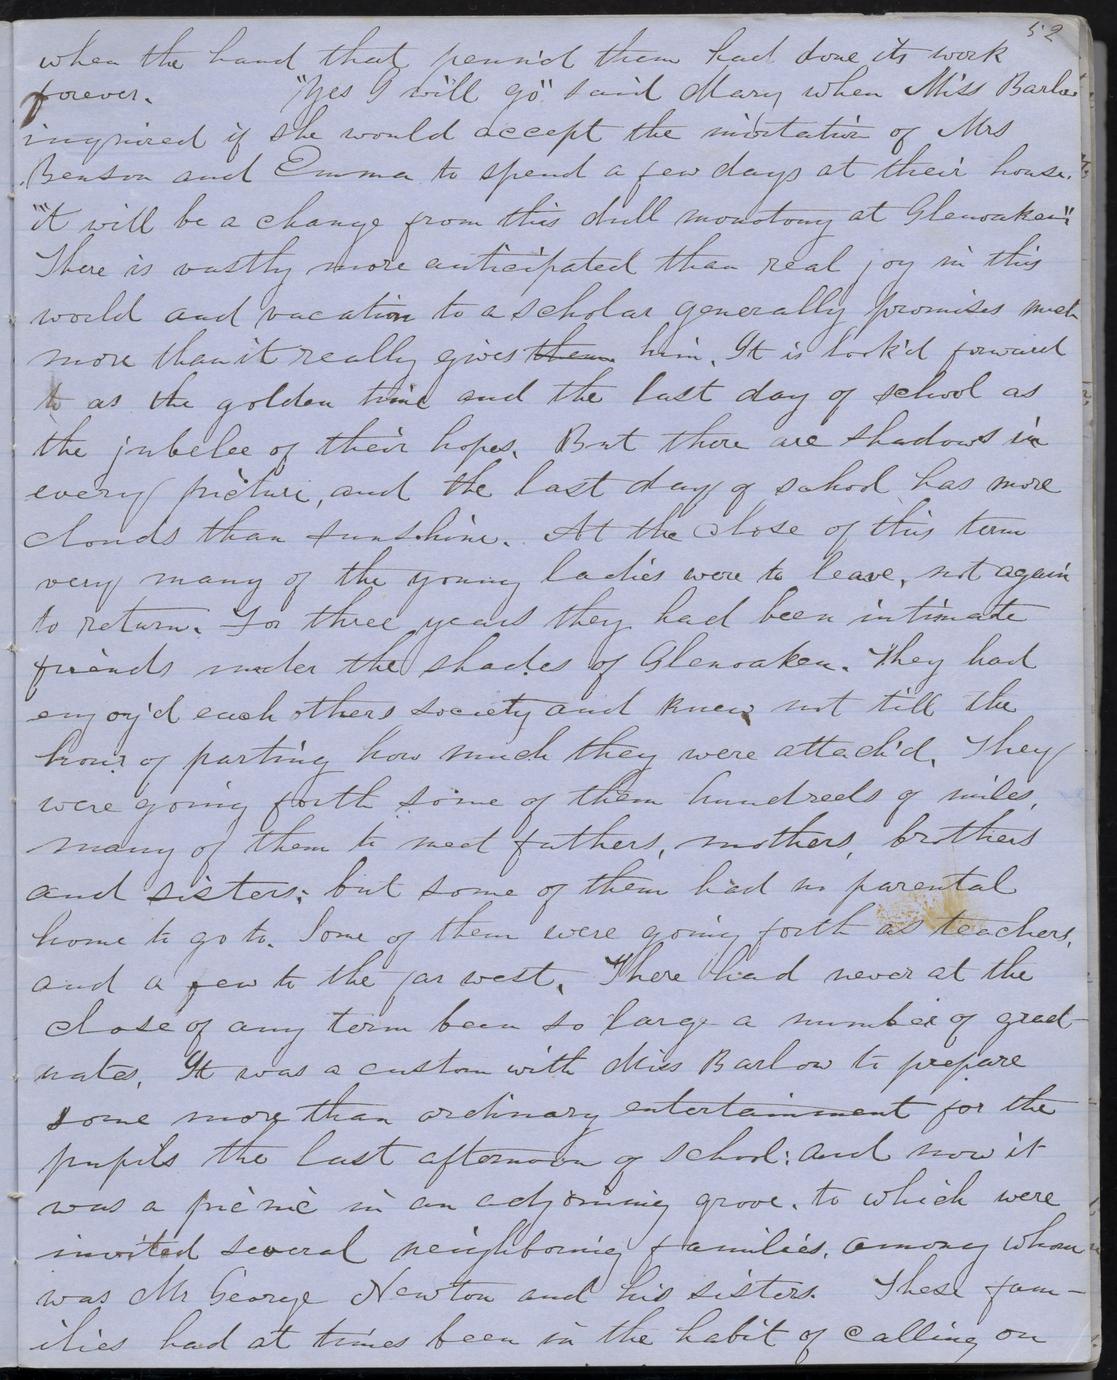 52
when the hand that penn'd them had done its work
forever. "Yes I will go" said Mary when Miss Barlow
inquired if she would accept the invitation of Mrs
Benson and Emma to spend a few days at their house.
"it will be a change from this dull monotony at Glenoaken"
There is vastly more anticipated than real joy in this
world and vacation to a scholar generally promises much
more than it really gives them him. It is look'd forward
to as the golden time and the last day of school as
the jubelee of their hopes. But there are shadows in
every picture, and the last day of school has more
clouds than sunshine. At the close of this term
very many of the young ladies were to leave, not again
to return. For three years they had been intimate
friends under the shades of Glenoaken. They had
enjoy'd each others society and knew not till the
hour of parting how much they were attach'd. They
were going forth some of them hundreds of miles,
many of them to meet fathers, mothers, brothers
and sisters; but some of them had no parental
home to go to. Some of them were going forth as teachers,
and a few to the far west. There had never at the
close of any term been so large a number of grad-
uates. It was a custom with Miss Barlow to prepare
some more than ordinary entertainment for the
pupils the last afternoon of school: and now it
was a picnic in an adjoining grove. to which were
invited several neighboring families, among whom
was Mr George Newton and his sisters. These fam-
ilies had at times been in the habit of calling on